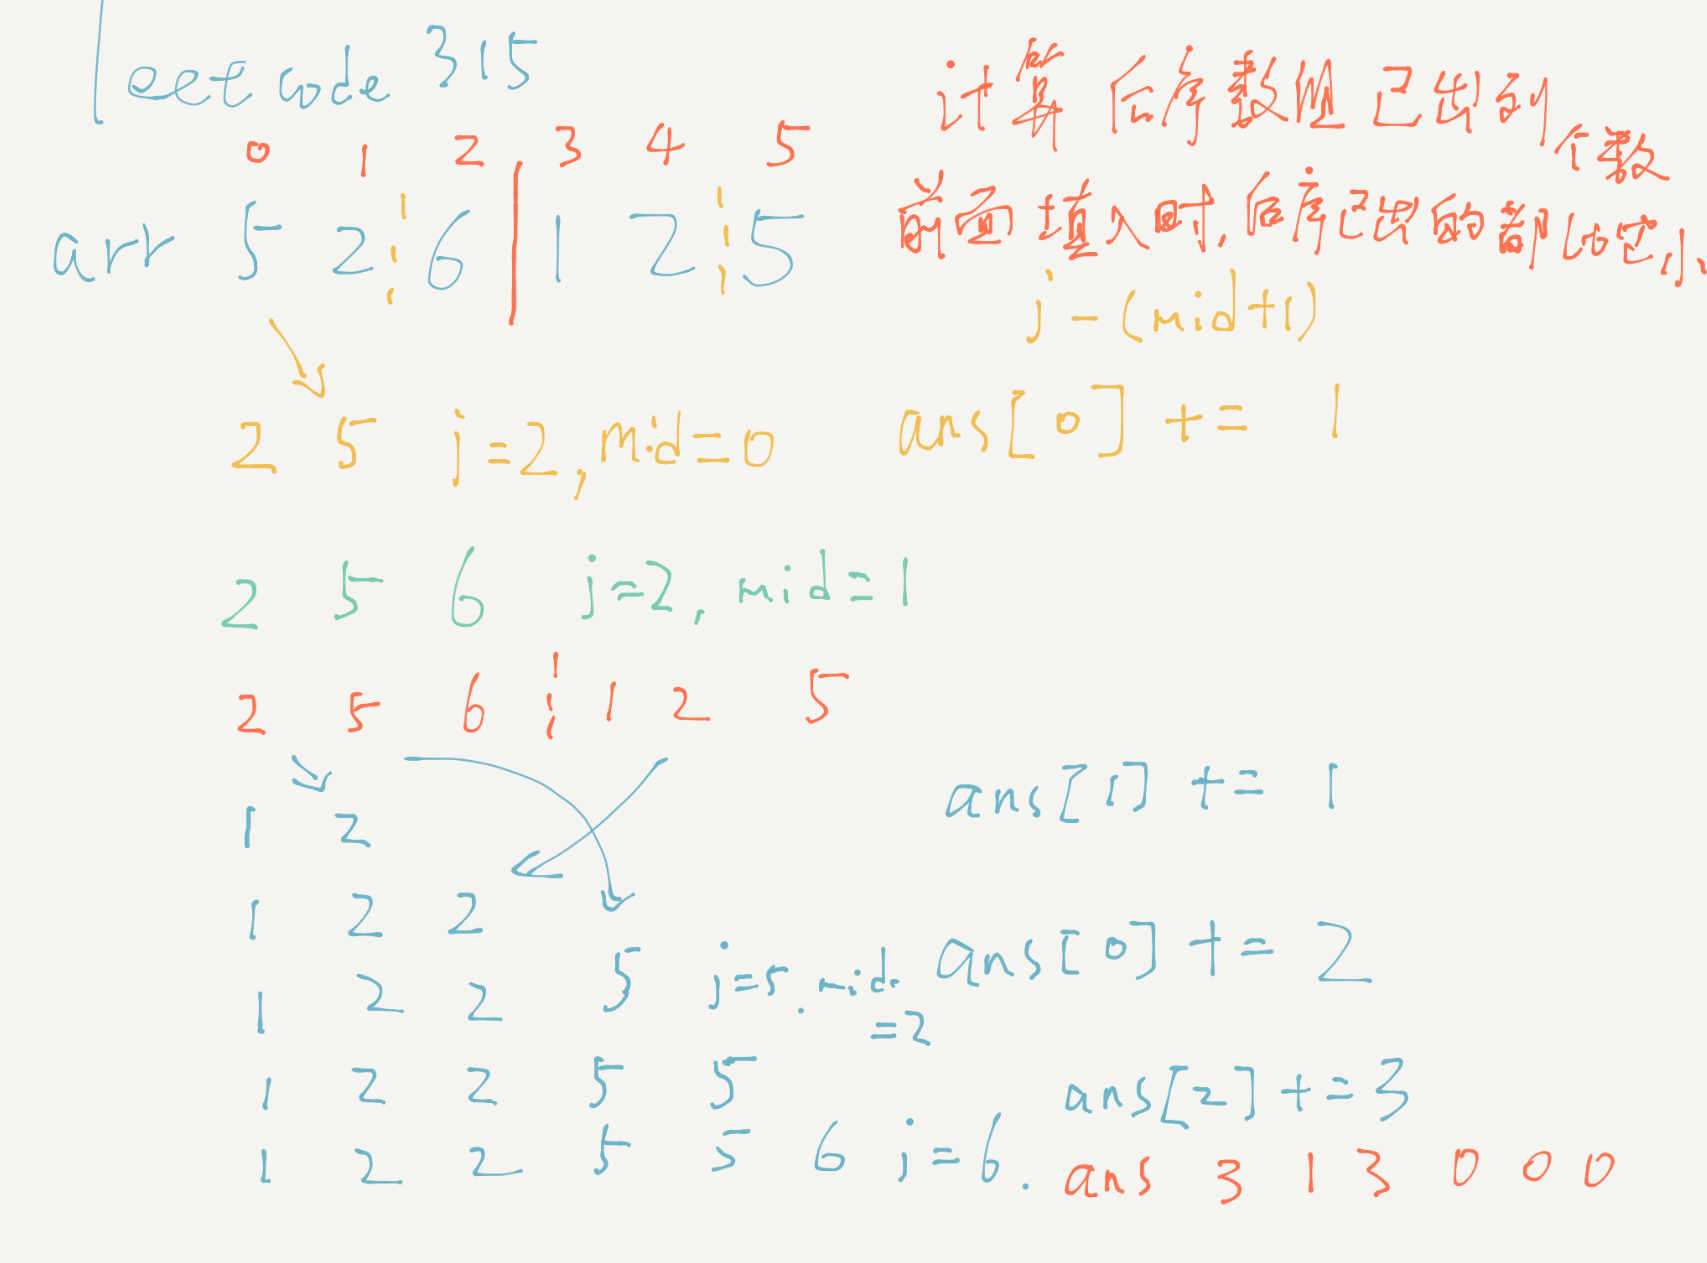 leetcode 315
计算后序数组已出列个数
0 1 2 3 4 5
前面填入时,后序已出的都比它小
arr 5 2 6 1 2 5
j-(mid+1)
2 5 j=2,mid=0 ans[0] += 1
2 5 6 j=2, mid=1
2 5 6 1 2 5
ans[1] += 1
1 2
1 2 2
1 2 2 5 j=5. mid=2 ans[0] += 2
1 2 2 5 5 ans[2] +=3
1 2 2 5 5 6 j=6.
ans 3 1 3 0 0 0